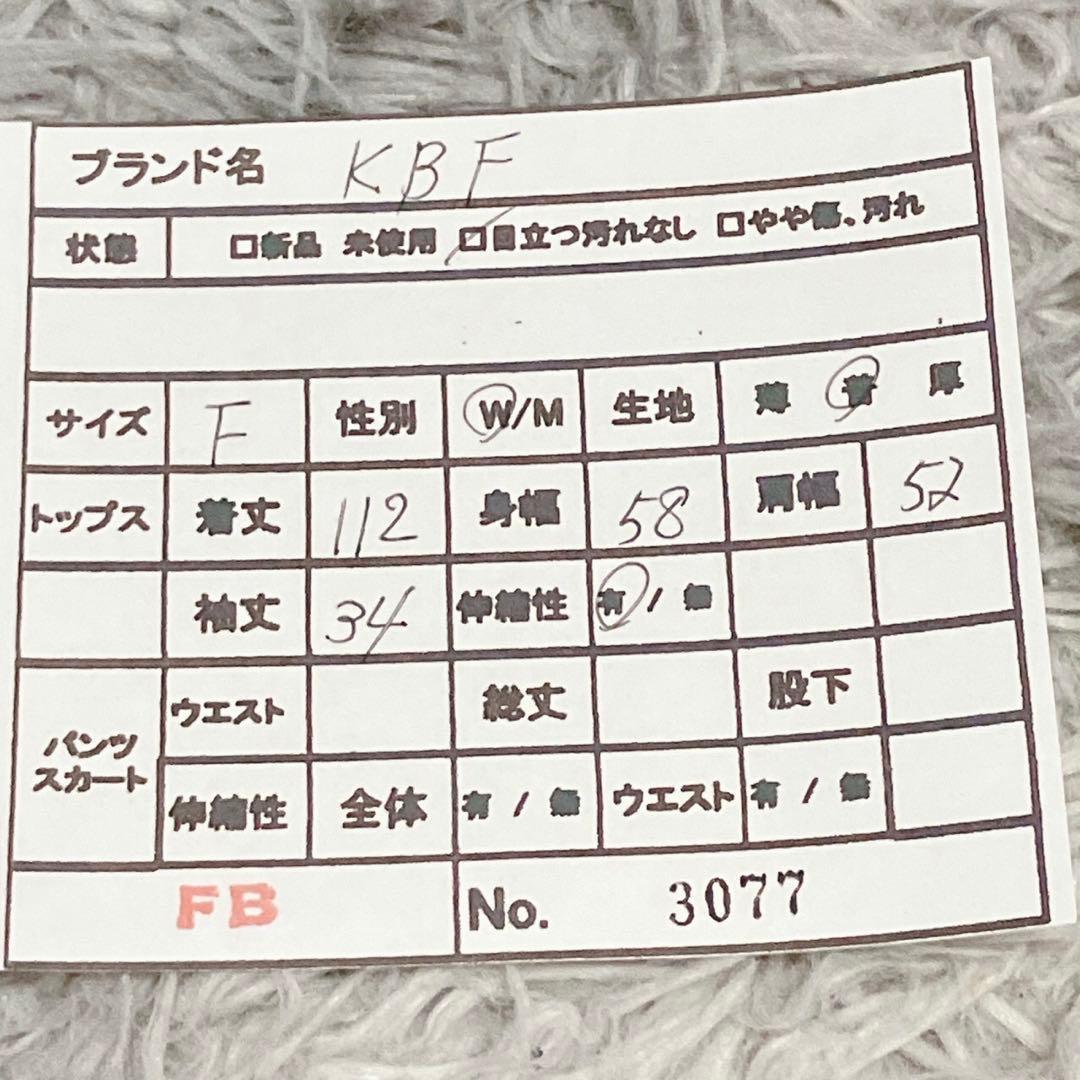 ブランド名 KBF
状態 □新品 未使用 ☑目立つ汚れなし □やや傷、汚れ
サイズ F 性別 W/M 生地 薄 普 厚
トップス 着丈 112 身幅 58 肩幅 52
袖丈 34 伸縮性 有 / 無
パンツ
スカート
ウエスト 総丈 股下
伸縮性 全体 有 / 無 ウエスト 有 / 無
FB No. 3077